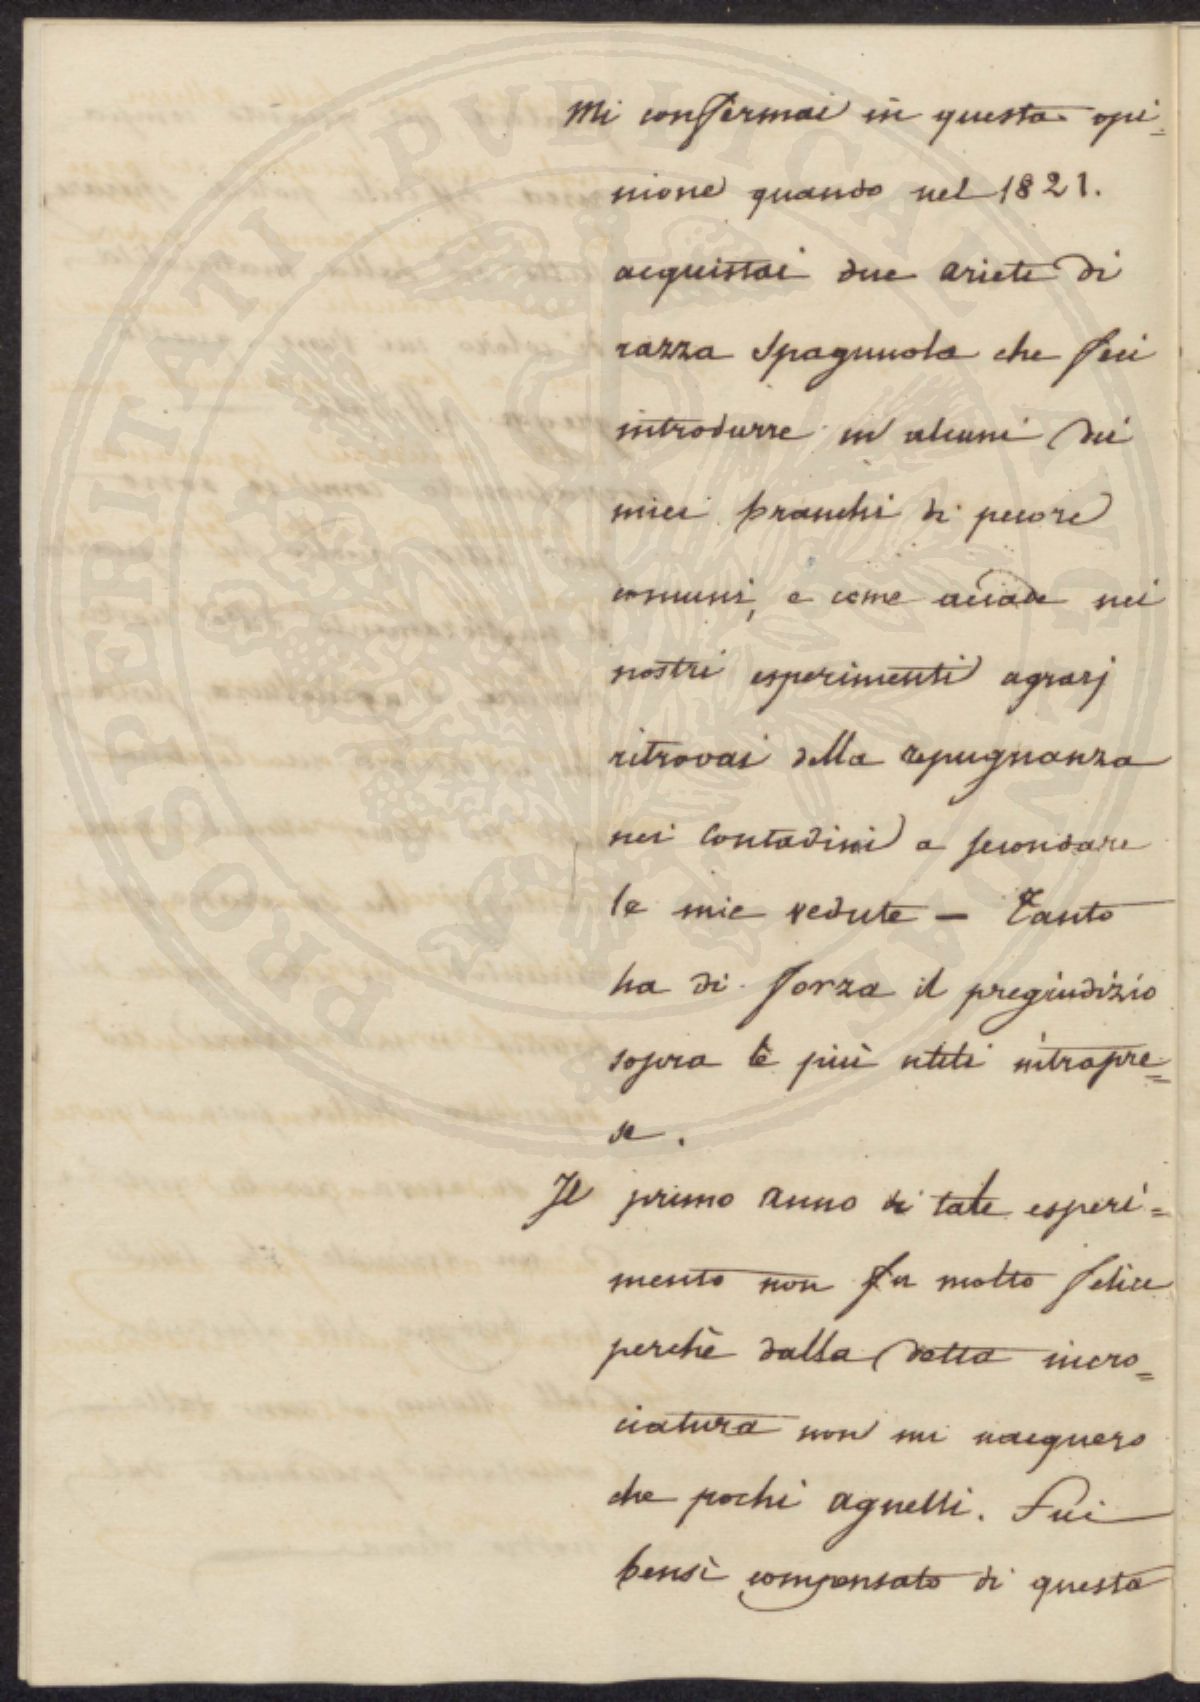 Mi confermai in questa opi=
nione quando nel 1821.
acquistai due ariete di
razza Spagnuola che feci
introdurre in alcuni dei
miei branchi di pecore
comuni, e come accade nei
nostri esperimenti agrarj
ritrovai della repugnanza
nei Contadini a secondare
le mie vedute — Tanto
ha di forza il pregiudizio
sopra le più utili intrapre=
se.
Il primo anno di tale esperi=
mento non fu molto felice
perchè dalla detta incro=
ciatura non mi nacquero
che pochi agnelli. Fui
bensì compensato di questa
PROSPERITATI PUBLICAE AUGENDAE